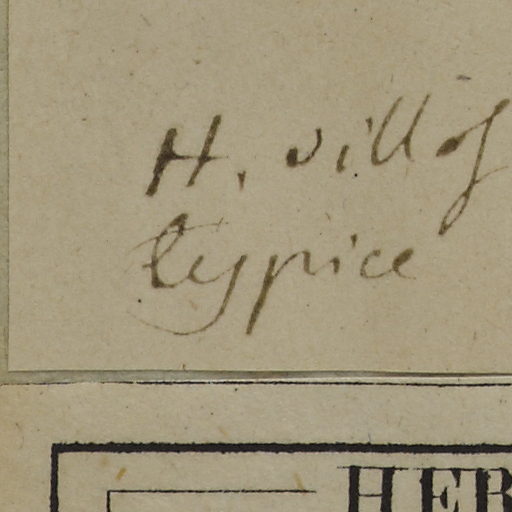 H. villos
typice
HER